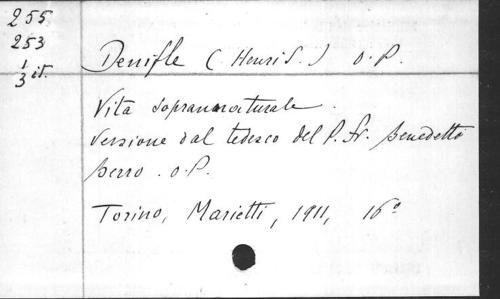 255
253
1/3 it.
Denifle (Henri S.) O.P.
Vita soprannaturale.
Versione dal tedesco del P. Fr. Benedetto
Berro. O.P.
Torino, Marietti, 1911, 16º